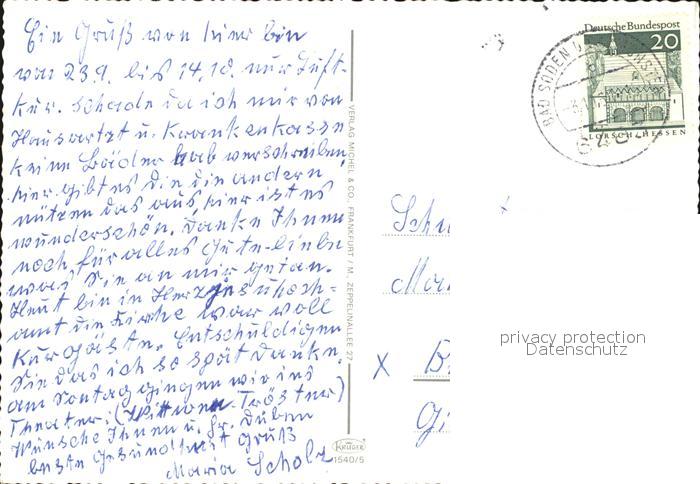 Ein Gruß von hier bin
von 23.9. bis 14.10. nur Luft-
kur. schade da ich mir von
Hausartzt u. Krankenkasse
keine Bäder hab verschreiben,
hier gibt es die die andern
nützen das aus, hier ist es
wunderschön. Danke Ihnen
noch für alles Gute-Liebe
was Sie an mir getan.
Heut bin in Herz Jesu hoch-
amt die Kirche war voll
Kurgäste. Entschuldigen
Sie das ich so spät danke.
am Sontag gingen wir ins
Theater: (Wittwen-Tröster)
Wünsche Ihnen u. Fr. Duben
beste Gesundheit Gruß
Maria Scholz
VERLAG MICHEL & CO, FRANKFURT / M, ZEPPELINALLEE 27
KRÜGER
1540/5
Deutsche Bundespost
20
LORSCH/HESSEN
BAD SODEN
Schu
x B
Gi
privacy protection
Datenschutz